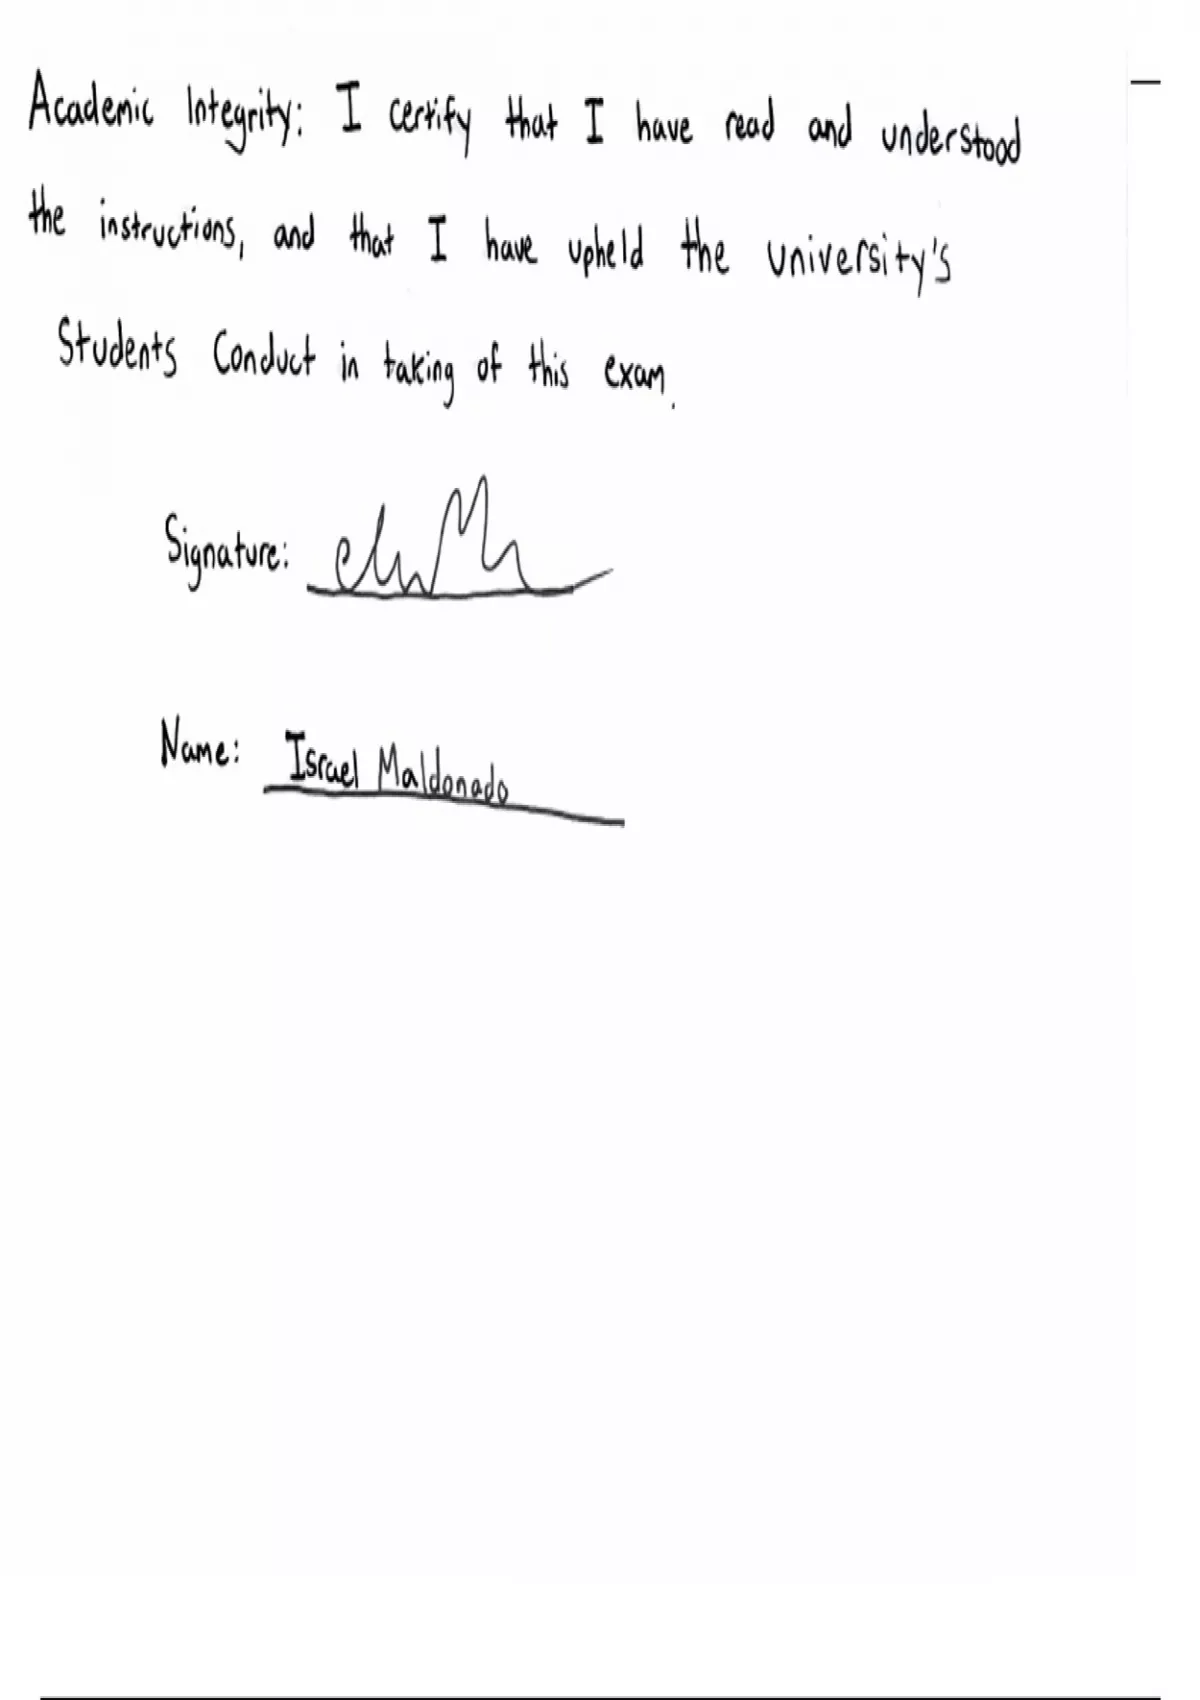 Academic Integrity: I certify that I have read and understood
the instructions, and that I have upheld the university's
Students Conduct in taking of this exam.
Signature:
Name: Israel Maldonado